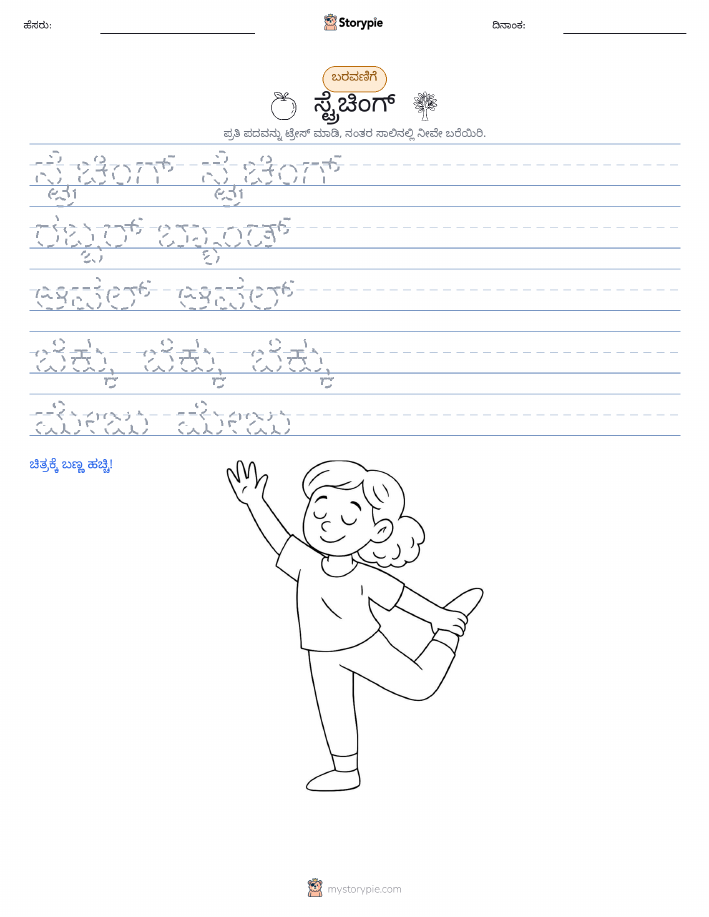 ಹೆಸರು:
Storypie
ದಿನಾಂಕ:
ಬರವಣಿಗೆ
ಸ್ಟ್ರೆಚಿಂಗ್
ಪ್ರತಿ ಪದವನ್ನು ಟ್ರೇಸ್ ಮಾಡಿ, ನಂತರ ಸಾಲಿನಲ್ಲಿ ನೀವೇ ಬರೆಯಿರಿ.
ಸ್ಟ್ರೆಚಿಂಗ್ ಸ್ಟ್ರೆಚಿಂಗ್
ರಬ್ಬರ್ ಬ್ಯಾಂಡ್
ಆನೆಲ್ ಆನೆಲ್
ಬೆಕ್ಕು ಬೆಕ್ಕು ಬೆಕ್ಕು
ಮೋಜು ಮೋಜು
ಚಿತ್ರಕ್ಕೆ ಬಣ್ಣ ಹಚ್ಚಿ!
mystorypie.com